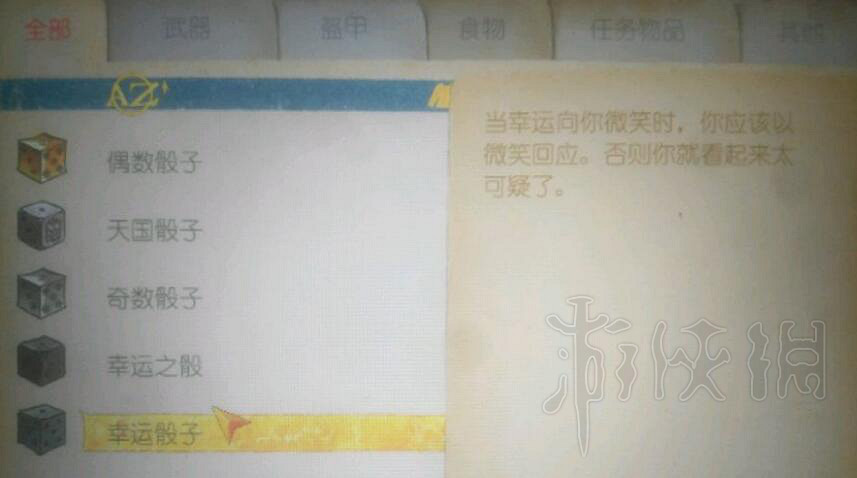 全部
武器
盔甲
食物
任务物品
其他
AZ
偶数骰子
天国骰子
奇数骰子
幸运之骰
幸运骰子
当幸运向你微笑时，你应该以
微笑回应。否则你就看起来太
可疑了。
游侠网